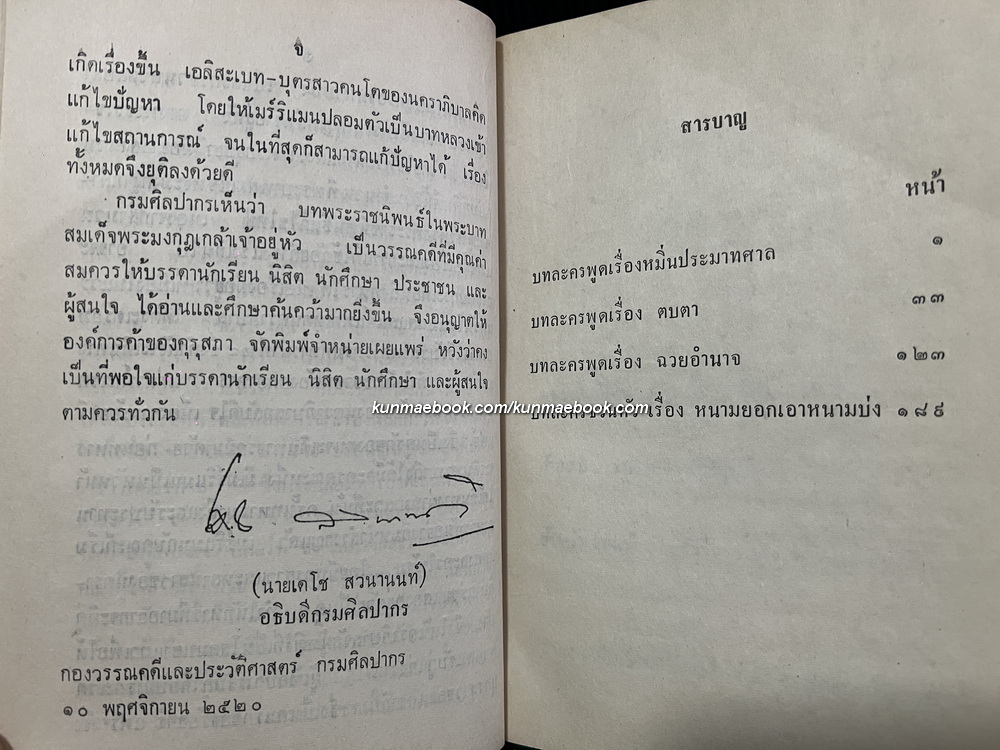 จ
เกิดเรื่องขึ้น เอลิสะเบท-บุตรสาวคนโตของนคราภิบาลคิด
แก้ไขปัญหา โดยให้เมร์ริแมนปลอมตัวเป็นบาทหลวงเข้า
แก้ไขสถานการณ์ จนในที่สุดก็สามารถแก้ปัญหาได้ เรื่อง
ทั้งหมดจึงยุติลงด้วยดี
กรมศิลปากรเห็นว่า บทพระราชนิพนธ์ในพระบาท
สมเด็จพระมงกุฎเกล้าเจ้าอยู่หัว เป็นวรรณคดีที่มีคุณค่า
สมควรให้บรรดานักเรียน นิสิต นักศึกษา ประชาชน และ
ผู้สนใจ ได้อ่านและศึกษาค้นคว้ามากยิ่งขึ้น จึงอนุญาตให้
องค์การค้าของคุรุสภา จัดพิมพ์จำหน่ายเผยแพร่ หวังว่าคง
เป็นที่พอใจแก่บรรดานักเรียน นิสิต นักศึกษา และผู้สนใจ
ตามควรทั่วกัน
(นายเดโช สวนานนท์)
อธิบดีกรมศิลปากร
กองวรรณคดีและประวัติศาสตร์ กรมศิลปากร
๑๐ พฤศจิกายน ๒๕๒๐
สารบาญ
หน้า
บทละครพูดเรื่องหมิ่นประมาทศาล ๑
บทละครพูดเรื่อง ตบตา ๓๓
บทละครพูดเรื่อง ฉวยอำนาจ ๑๒๓
บทละครชวนหัวเรื่อง หนามยอกเอาหนามบ่ง ๑๘๙
kunmaebook.com/kunmaebook.com